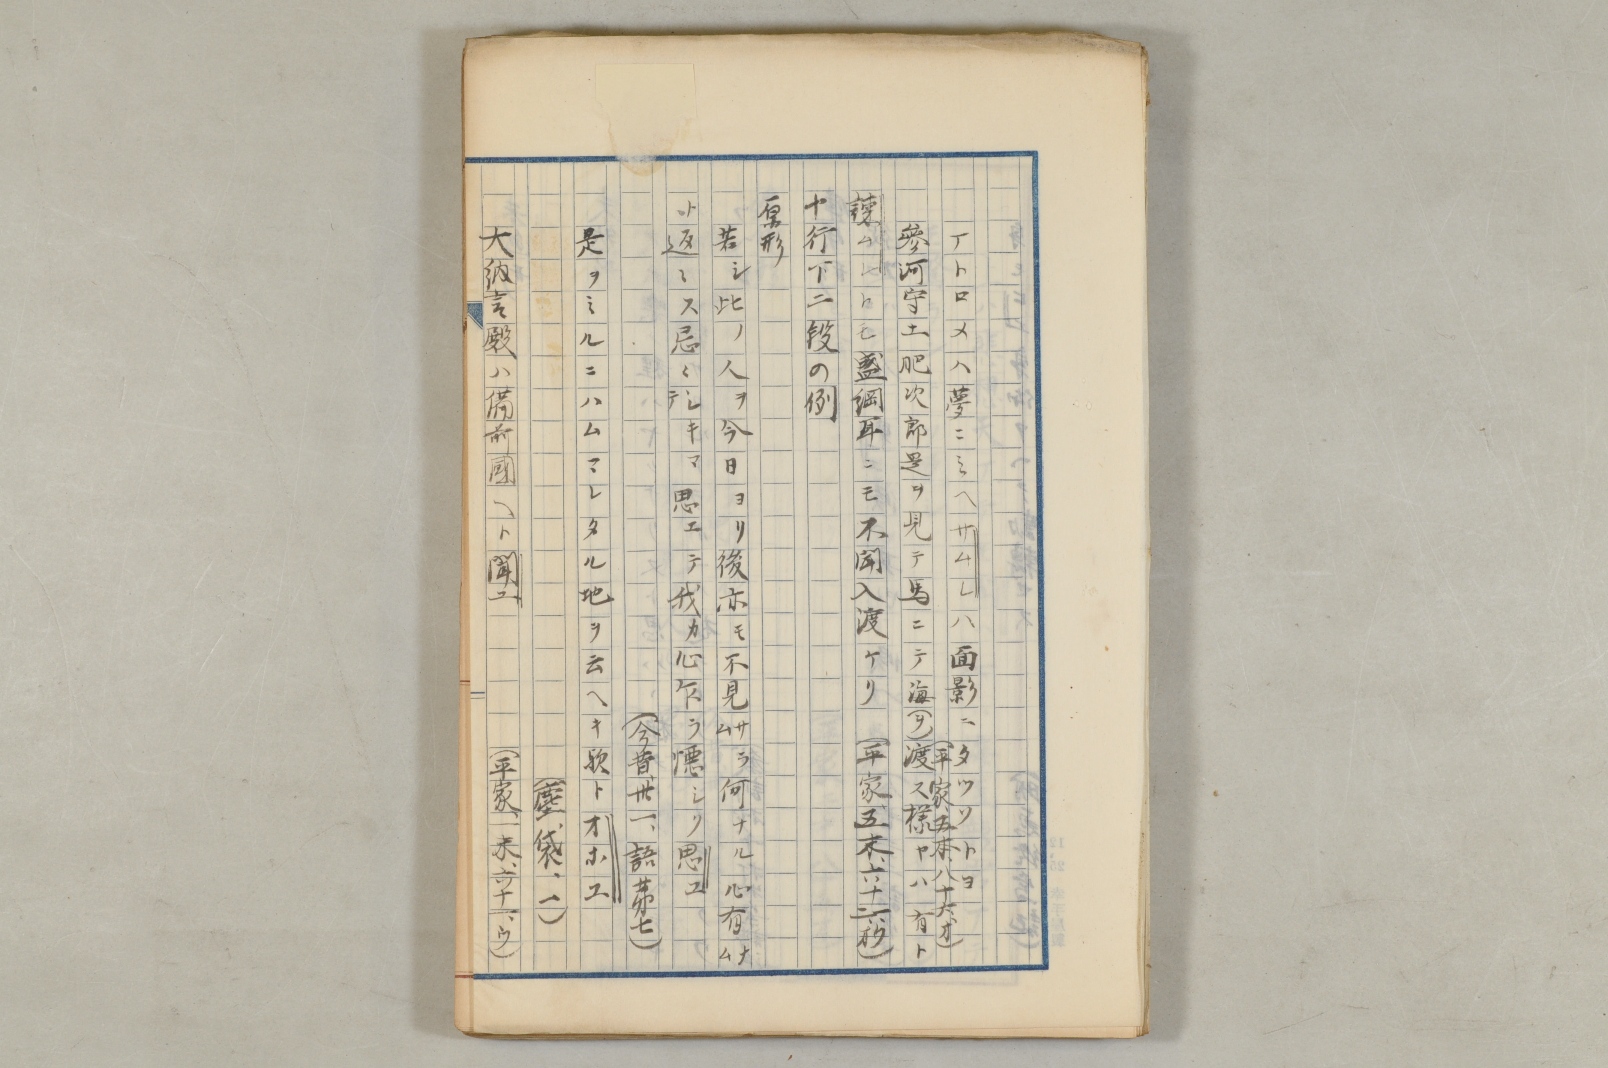 アトロメハ夢ニミヘサムレハ面影ニタツソトヨ
(平家、五本、八十六、オ)
參河守土肥次郎是ヲ見テ馬ニテ海(ヲ)渡ス様ヤハ有ト
諫ムレトモ盛綱耳ニモ不聞入渡ケリ(平家、五末、六十六、オ)
ヤ行下二段の例
原形
若シ此ノ人ヲ今日ヨリ後亦モ不見サラム何ナル心有ナム
ト返〻ス忌〻シキマテ思エテ我カ心乍ラ憑シリ思エ
(今昔、卅一、語第七)
是ヲミルニハムマレタル地ヲ云ヘキ歟トオホエ
(塵袋、一)
大納言殿ハ備前國ヘト聞エ(平家、一末、六十一、ウ)